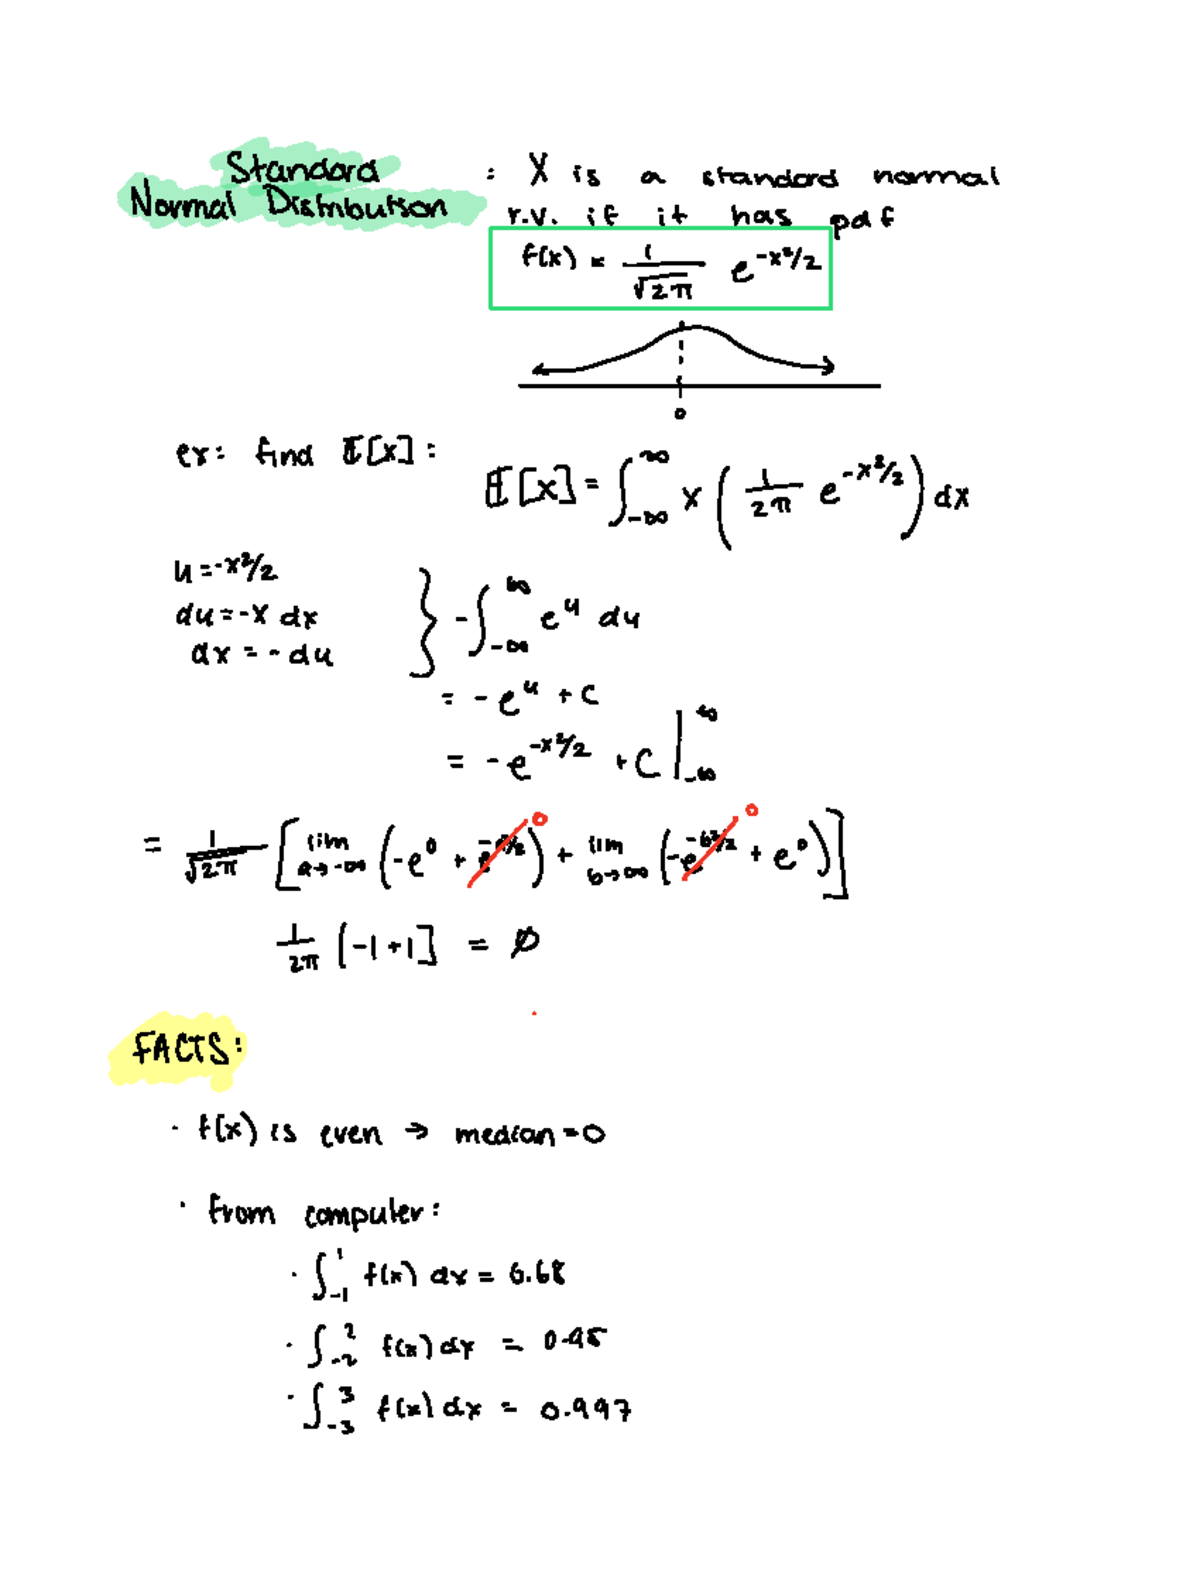 Standard
Normal Distribution
: X is a standard normal
r.v. if it has pdf
f(x) = 1/√2π e^-x²/2
0
ex: find 𝔼[x]:
𝔼[x] = ∫_-∞^∞ x ( 1/2π e^-x²/2 ) dx
u = -x²/2
du = -x dx
dx = - du
} - ∫_-∞^∞ e^u du
= - e^u + C
= - e^-x²/2 + C |_-∞^∞
= 1/√2π [ lim a→-∞ ( -e^0 + e^-a²/2 0 ) + lim b→∞ ( -e^-b²/2 0 + e^0 ) ]
1/2π [-1+1] = ∅
FACTS:
· f(x) is even → median = 0
· from computer:
· ∫_-1^1 f(x) dx = 0.68
· ∫_-2^2 f(x) dx = 0.95
· ∫_-3^3 f(x) dx = 0.997